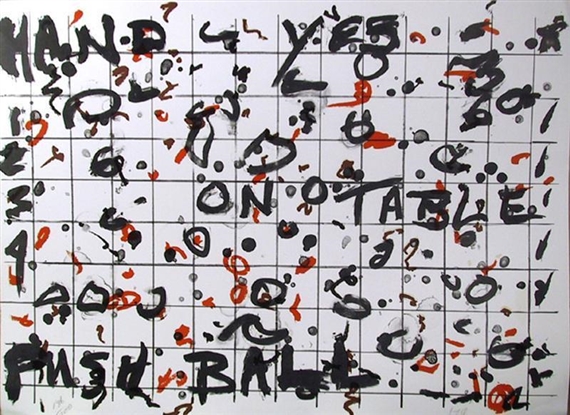 HAND YES
1
2
3 ON TABLE
4
PUSH BALL